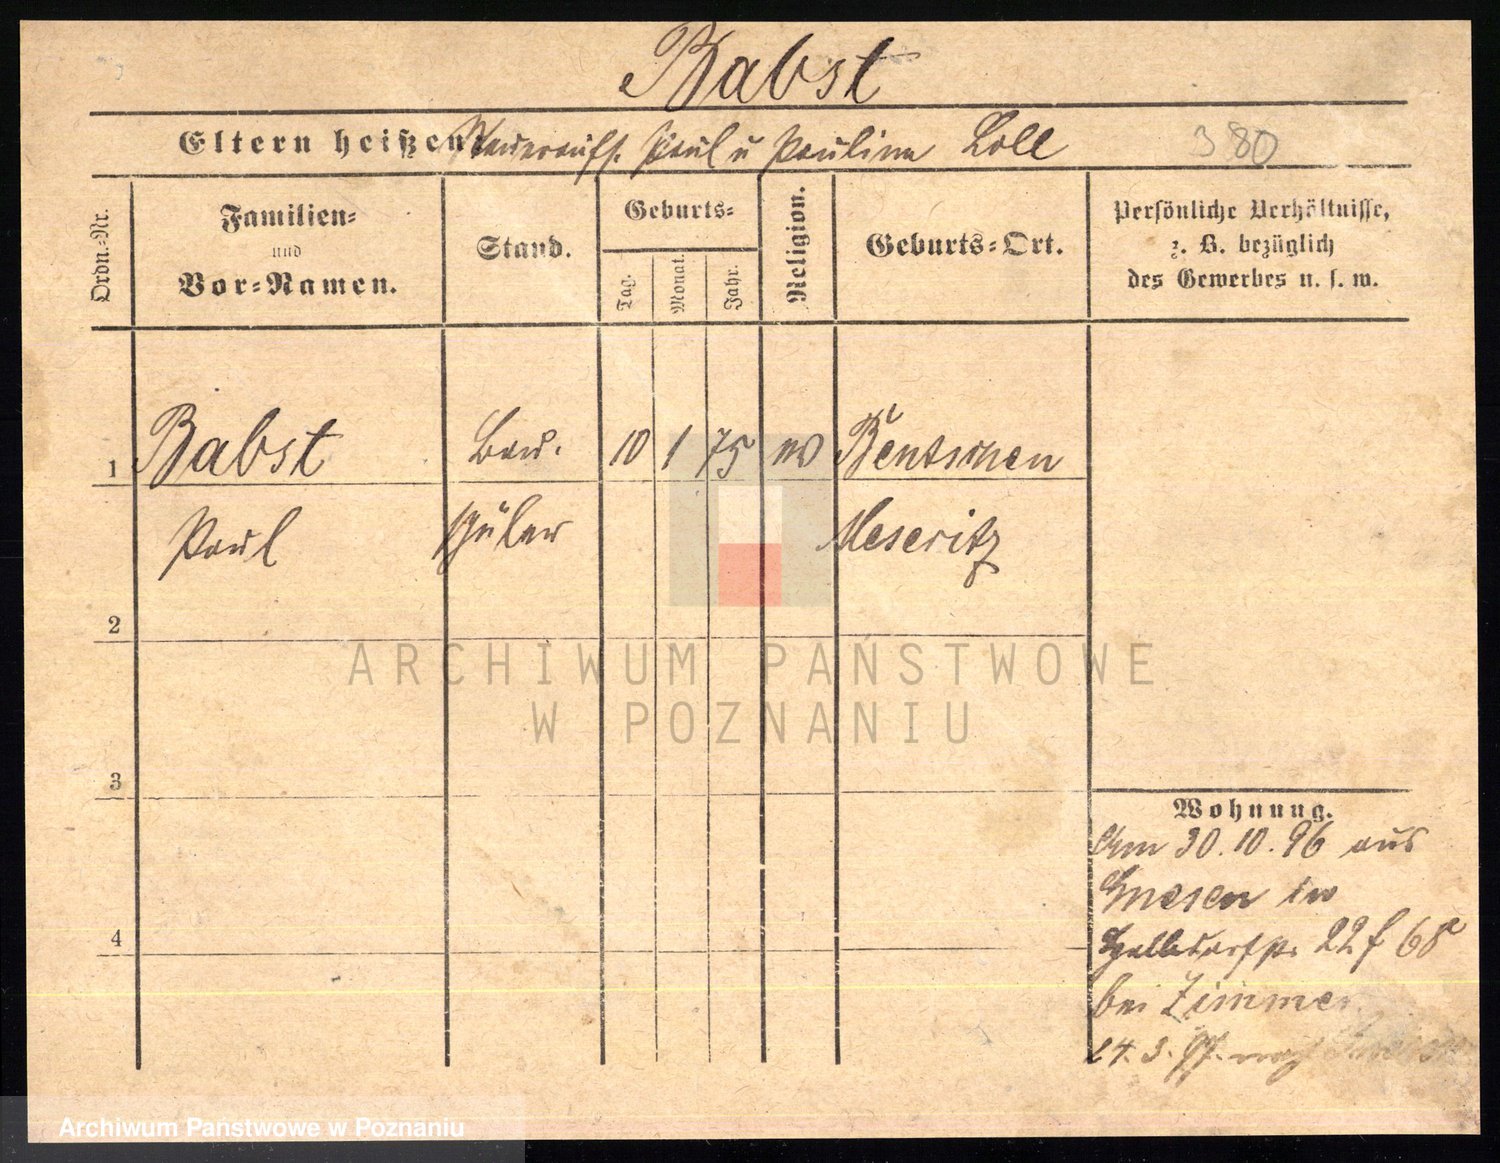 Babst
Eltern heißen Paul u Pauline Loll
380
Ordn.-Nr.
Familien-
und
Vor-Namen.
Stand.
Geburts-
Tag.
Monat.
Jahr.
Religion.
Geburts-Ort.
Persönliche Verhältnisse,
z. B. bezüglich
des Gewerbes u. s. w.
1 Babst Bau. 10 1 75 Bentschen
Paul Schüler Meseritz
2
3
4
ARCHIWUM PAŃSTWOWE
W POZNANIU
Wohnung.
Am 30.10.96 aus
Gnesen in
22 f 68
bei Zimmer
24.3.97. nach
Archiwum Państwowe w Poznaniu